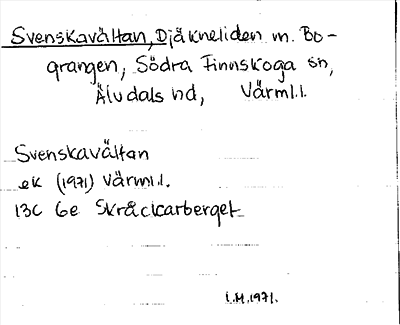 Svenskavältan, Djäkneliden m. Bo-
grangen, Södra Finnskoga sn,
Älvdals hd, Värml.l.
Svenskavältan
ek (1971) Värml.l.
13C 6e Skråckarberget
I.H.1971.